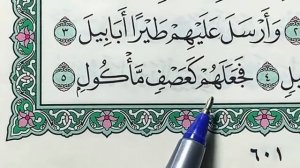 ٢ وَأَرْسَلَ عَلَيْهِمْ طَيْرًا أَبَابِيلَ ٣
يلٍ ٤ فَجَعَلَهُمْ كَعَصْفٍ مَّأْكُولٍ ٥
٦٠١